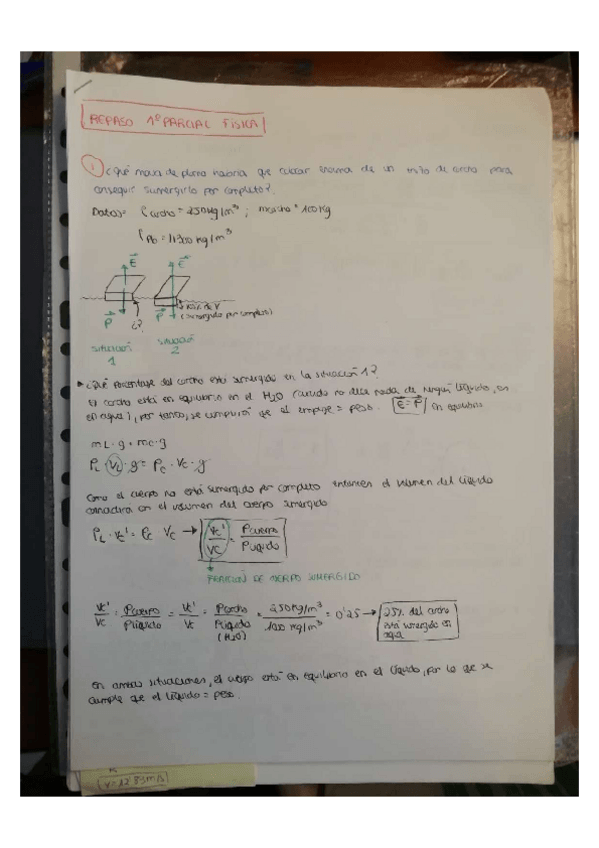 REPASO 1º PARCIAL FÍSICA
1 ¿Qué masa de plomo habría que colocar encima de un trozo de corcho para
conseguir sumergirlo por completo?
Datos= ρcorcho = 250 kg/m³ ; mcorcho = 100 kg
ρPb = 11300 kg/m³
E E
100% de V
(sumergido por completo)
P ¿? P
SITUACIÓN SITUACIÓN
1 2
¿Qué porcentaje del corcho está sumergido en la situación 1?
El corcho está en equilibrio en el H2O (cuando no dice nada de ningún líquido, es
en agua), por tanto, se cumplirá que el empuje = peso. E = P En equilibrio
mL · g = mc · g
ρL · VL · g = ρc · Vc · g
Como el cuerpo no está sumergido por completo entonces el volumen del líquido
coincidirá con el volumen del cuerpo sumergido
ρL · Vc' = ρc · Vc → Vc'/Vc = ρcuerpo/ρlíquido
FRACCIÓN DE CUERPO SUMERGIDO
Vc'/Vc = ρcuerpo/ρlíquido = Vc'/Vc = ρcorcho/ρlíquido (H2O) = 250 kg/m³/1000 kg/m³ = 0'25 → 25% del corcho
está sumergido en
agua
En ambas situaciones, el cuerpo está en equilibrio en el líquido, por lo que se
cumple que el líquido = peso.
(v = 12.89 m/s)